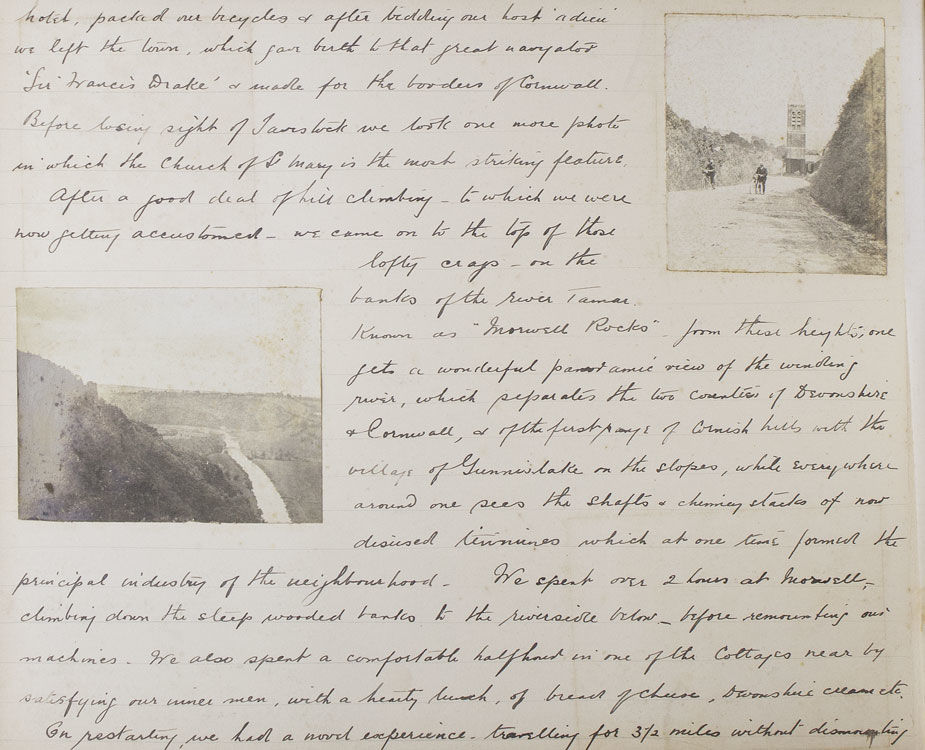 hotel, packed our bicycles & after bidding our host 'adieu'
we left the town, which gave birth to that great navigator
'Sir Francis Drake' & made for the borders of Cornwall.
Before losing sight of Tavistock we took one more photo
in which the Church of St Mary is the most striking feature.
After a good deal of hill climbing - to which we were
now getting accustomed - we came on to the top of those
lofty crags - on the
banks of the river Tamar.
Known as "Morwell Rocks" - from these heights, one
gets a wonderful panoramic view of the winding
river, which separates the two counties of Devonshire
& Cornwall, & of the first range of Cornish hills with the
village of Gunnislake on the slopes, while everywhere
around one sees the shafts & chimney stacks of now
disused tinmines which at one time formed the
principal industry of the neighbourhood - We spent over 2 hours at Morwell,-
climbing down the steep wooded banks to the riverside below - before remounting our
machines. We also spent a comfortable halfhour in one of the Cottages near by
satisfying our inner men, with a hearty lunch, of bread & cheese, Devonshire cream etc.
On restarting, we had a novel experience - travelling for 3½ miles without dismounting